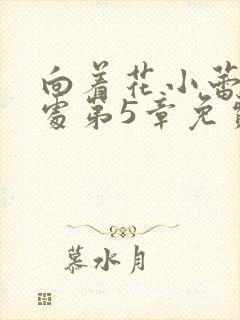 向着花小蕾
处第5章免
慕水月